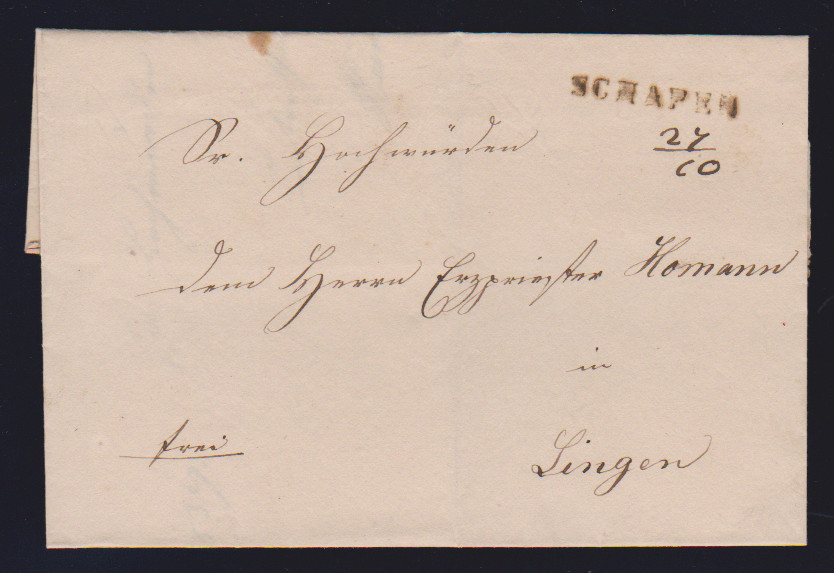 SCHAPEN
Sr. Hochwürden
27
10
dem Herrn Erzpriester Homann
in
frei
Lingen